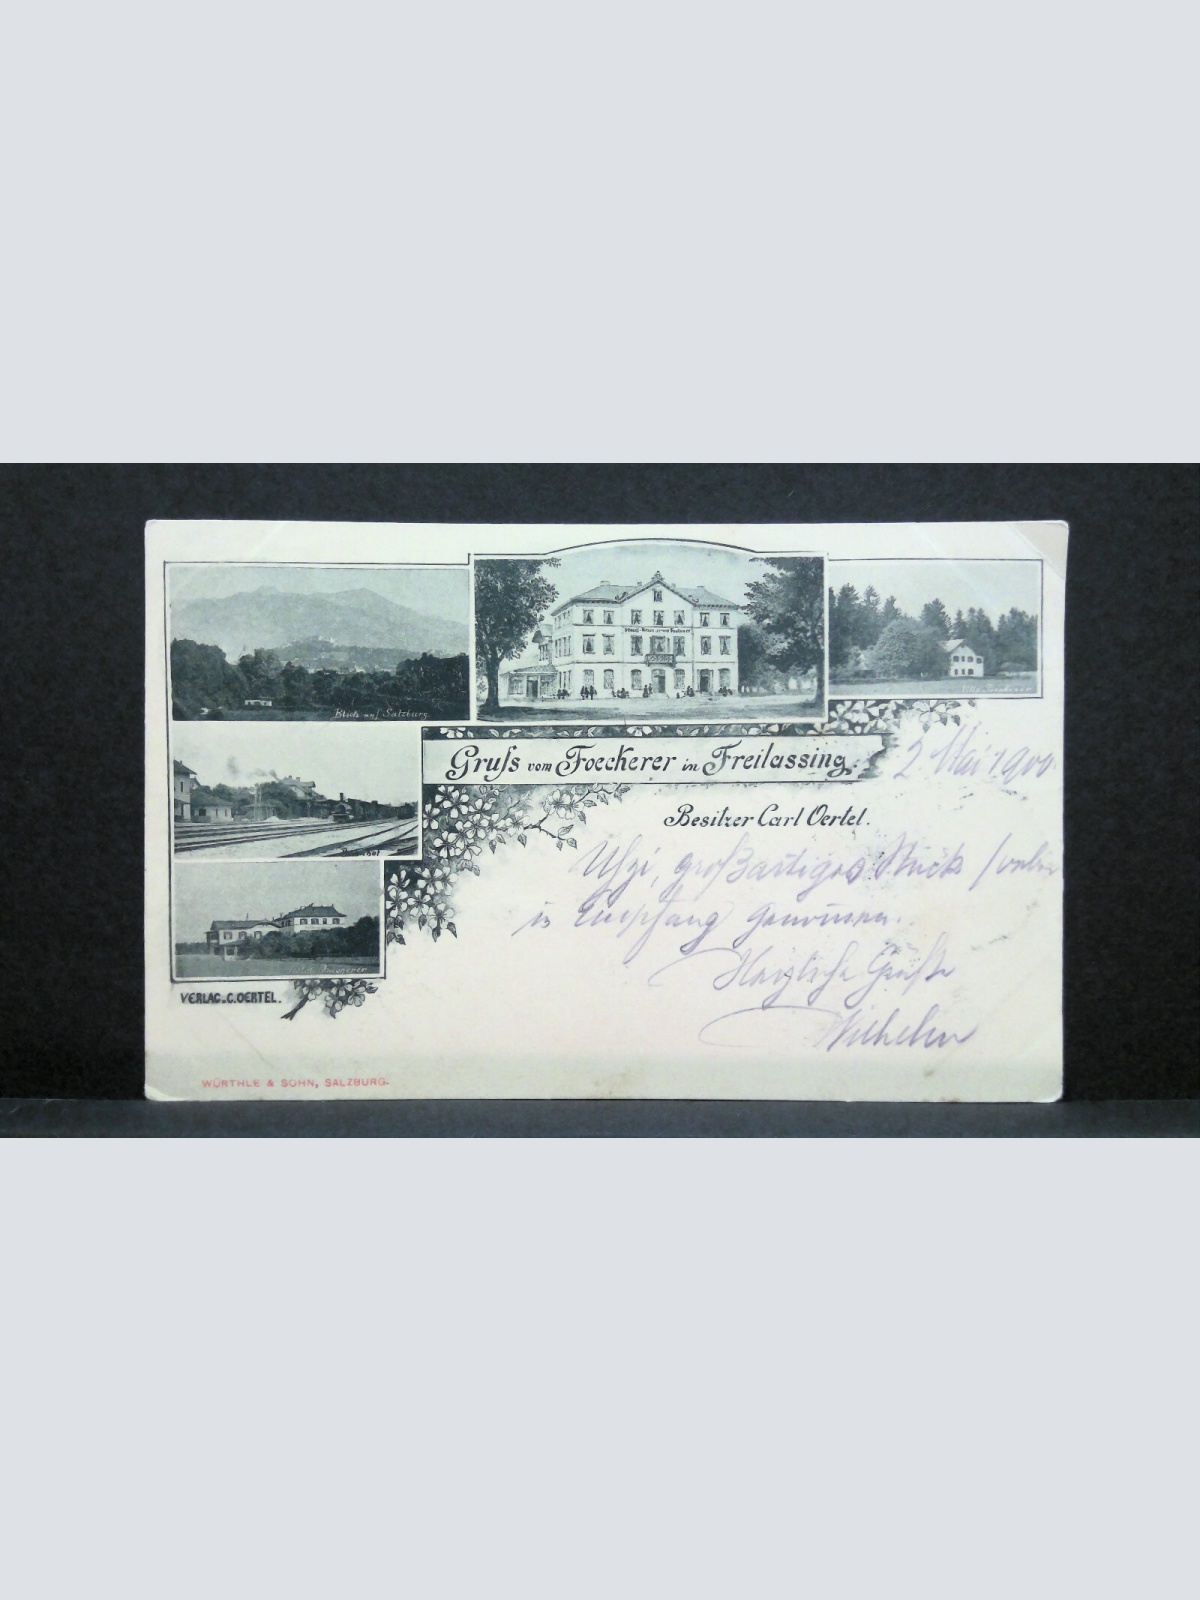 Blick auf Salzburg.
Gruss vom Foeckerer in Freilassing.
2. Mai 1900
Besitzer Carl Oertel.
Bahnhof
großartiges Stück
in Empfang genommen.
Herzliche Grüße
Wilhelm
VERLAG C. OERTEL.
WÜRTHLE & SOHN, SALZBURG.